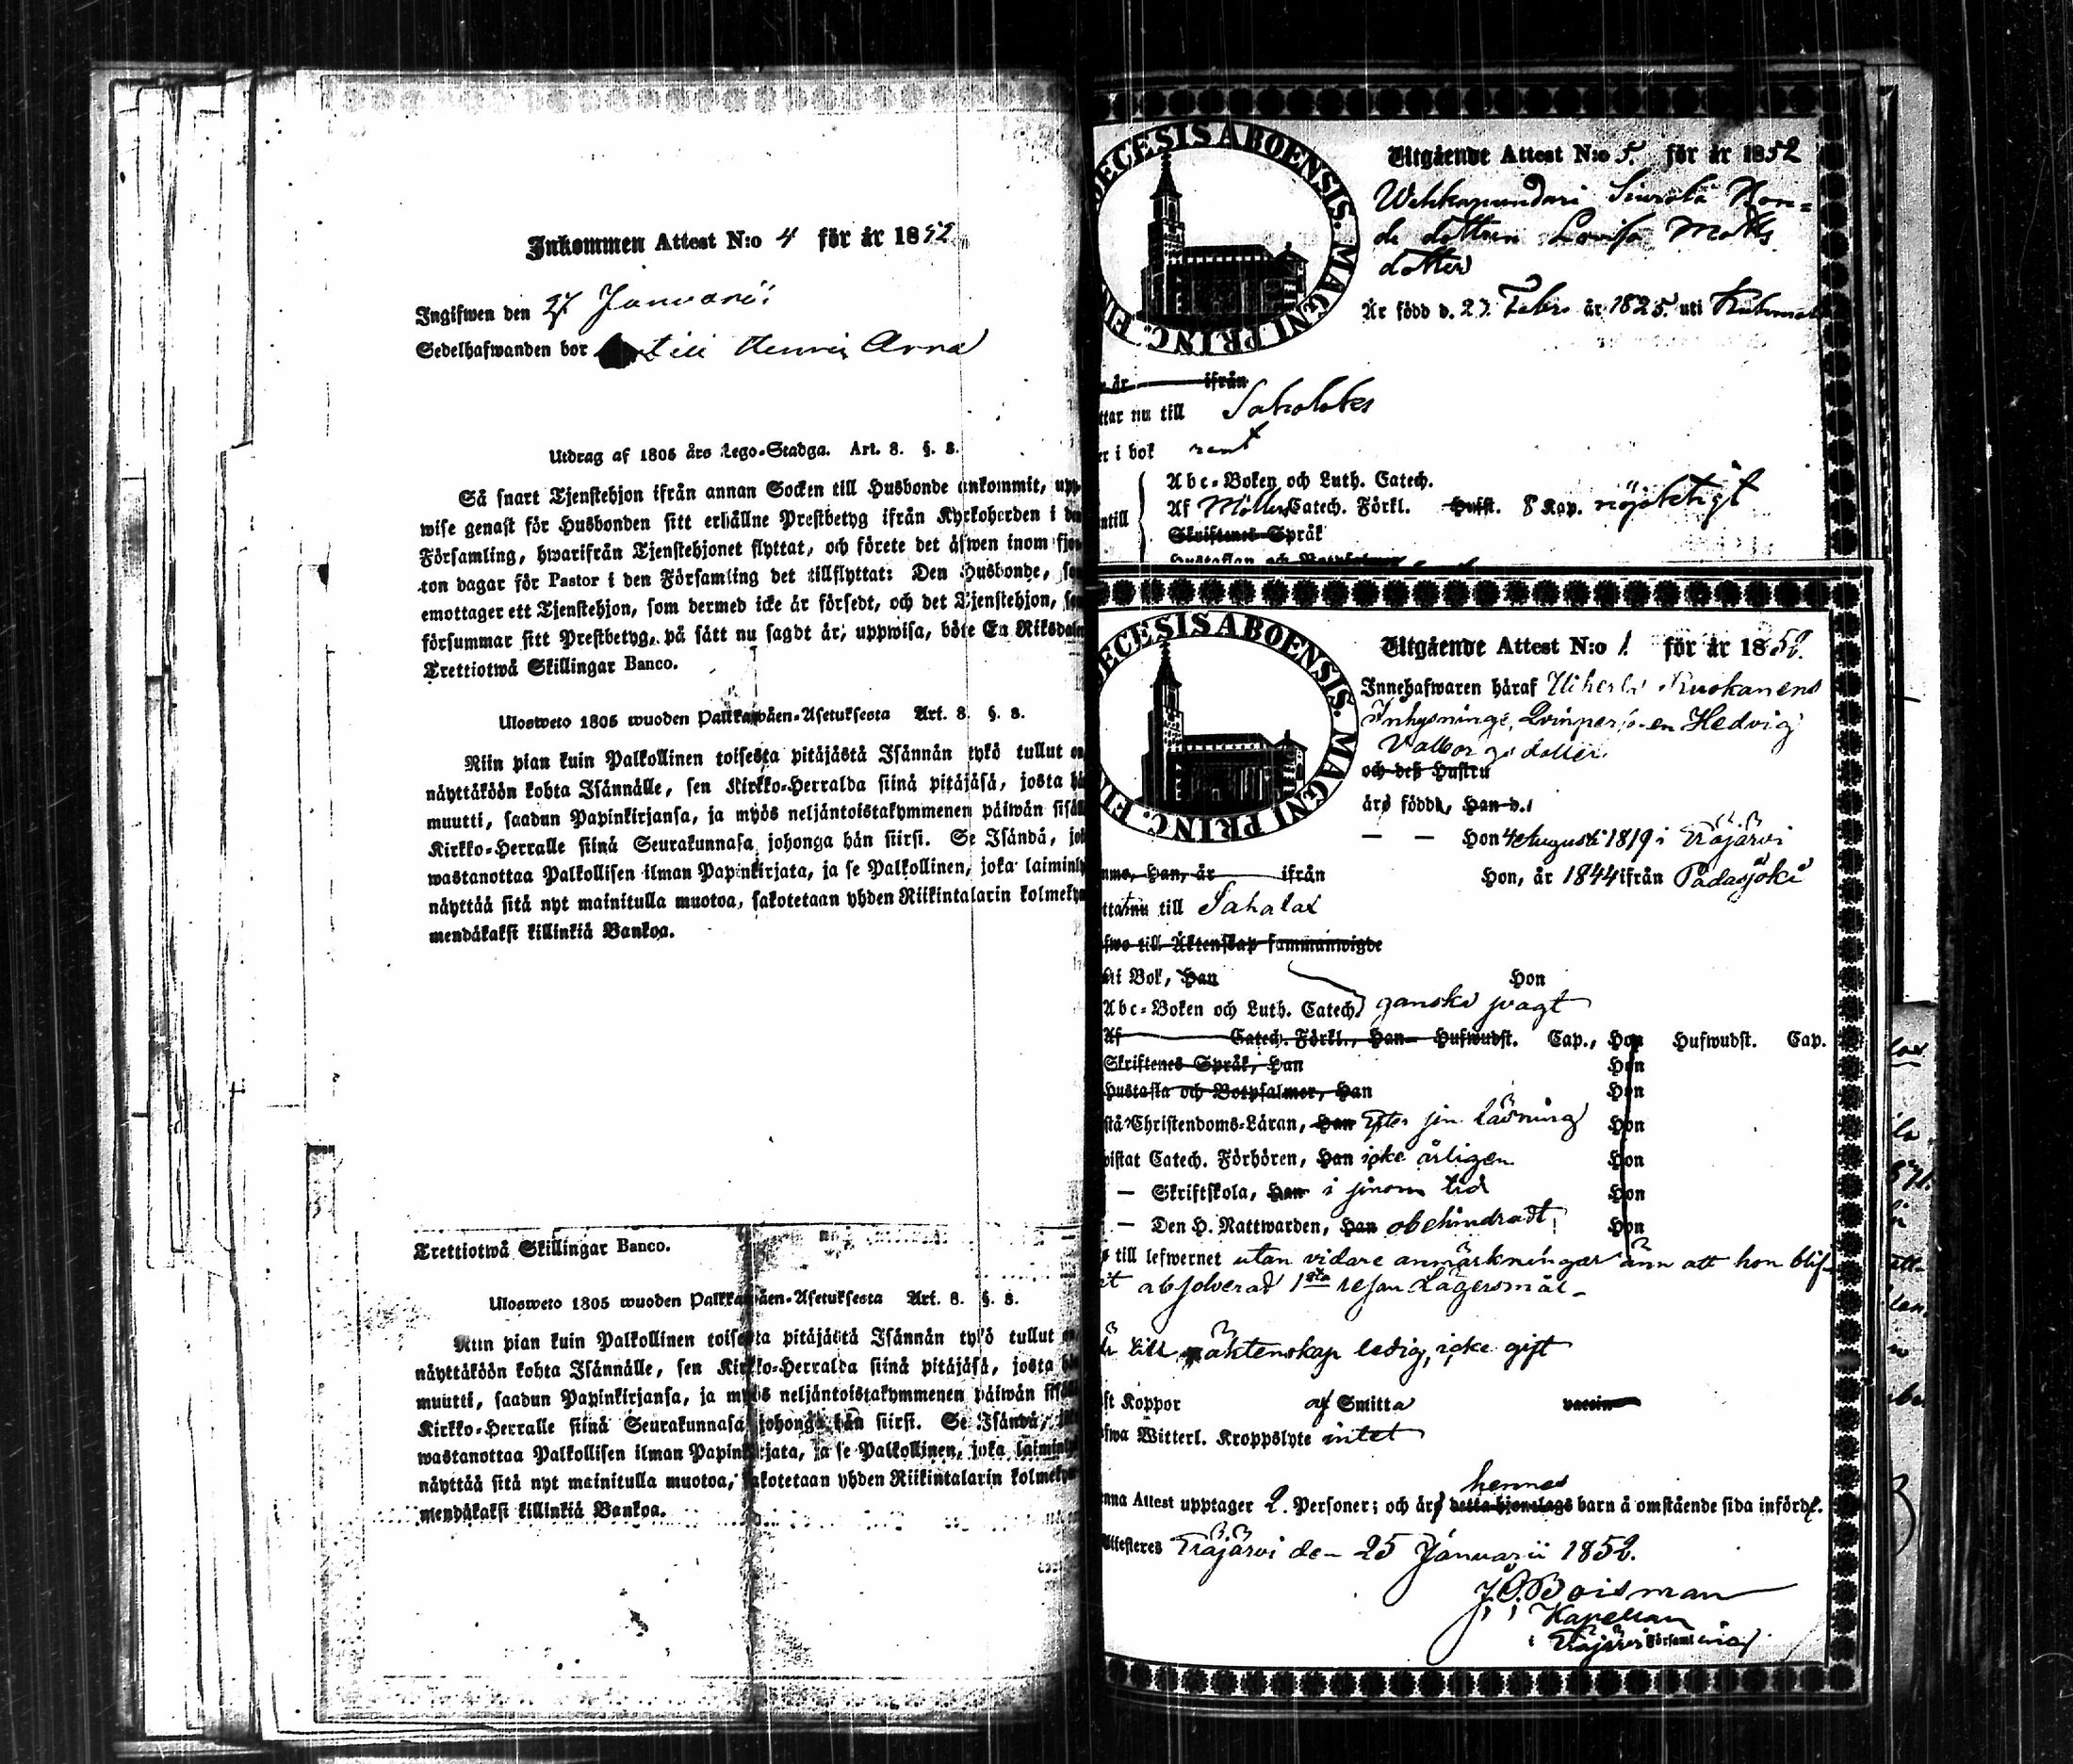 Inkommen Attest N:o 4 för år 1852
Ingifwen den 27 Januarii
Sedelhafwanden bor till Arra
Utdrag af 1805 års Lego-Stadga. Art. 8. §. 8.
Så snart Tjenstehjon ifrån annan Socken till Husbonde ankommit, upp-
wise genast för Husbonden sitt erhållne Prestbetyg ifrån Kyrkoherden i den
Församling, hwarifrån Tjenstehjonet flyttat, och förete det äfwen inom fjor-
ton dagar för Pastor i den Församling det tillflyttat: Den Husbonde, som
emottager ett Tjenstehjon, som dermed icke är försedt, och det Tjenstehjon, som
försummar sitt Prestbetyg, på sätt nu sagdt är, uppwisa, böte En Riksdaler
Trettiotwå Skillingar Banco.
Ulosweto 1805 wuoden Palkkawäen-Asetuksesta Art. 8. §. 8.
Niin pian kuin Palkollinen toisesta pitäjästä Isännän tykö tullut on
näyttäköön kohta Isännälle, sen Kirkko-Herralda siinä pitäjäsä, josta hän
muutti, saadun Papinkirjansa, ja myös neljäntoistakymmenen päiwän sisäll
Kirkko-Herralle siinä Seurakunnasa johonga hän siirsi. Se Isändä, jok
wastanottaa Palkollisen ilman Papinkirjata, ja se Palkollinen, joka laiminly
näyttää sitä nyt mainitulla muotoa, sakotetaan yhden Riikintalarin kolmekym
mendäkaksi killinkiä Bankoa.
Trettiotwå Skillingar Banco.
Ulosweto 1805 wuoden Palkkawäen-Asetuksesta Art. 8. §. 8.
Niin pian kuin Palkollinen toisesta pitäjästä Isännän tykö tullut on
näyttäköön kohta Isännälle, sen Kirkko-Herralda siinä pitäjäsä, josta hän
muutti, saadun Papinkirjansa, ja myös neljäntoistakymmenen päiwän sisäll
Kirkko-Herralle siinä Seurakunnasa johonga hän siirsi. Se Isändä, jok
wastanottaa Palkollisen ilman Papinkirjata, ja se Palkollinen, joka laiminly
näyttää sitä nyt mainitulla muotoa, sakotetaan yhden Riikintalarin kolmekym
mendäkaksi killinkiä Bankoa.
ECESIS ABOENSIS. MAGNI PRINC. FI
Utgående Attest N:o 5. för år 1852
Wehkapundari Bon=
de dottren Lovisa Matts
dotter
Är född d. 27. Febr. år 1825. uti Kuhmalax
år ifrån
ttar nu till Sahalaks
er i bok rent
Abc-Boken och Luth. Catech.
ntill Af Möllers Catech. Förkl. Hufst. 8 Kap. nöjaktigt
Skriftenes Språk
Hustaflan och Botpsalmer
ECESIS ABOENSIS. MAGNI PRINC. FI
Utgående Attest N:o 1. för år 1852.
Innehafwaren häraf Uiherla Ruokanens
Inhysninge, Qvinpersonen Hedvig
Valborgsdotter.
och deß Hustru
äro födde, Han d.
— — Hon 4 Augusti 1819 i Eräjärvi
mmo, Han, år ifrån Hon, år 1844 ifrån Padasjoki
tta nu till Sahalax
fwo till Äktenskap sammanwigde
i Bok, Han Hon
Abc-Boken och Luth. Catech. ganska svagt
Af Catech. Förkl., Han Hufwudst. Cap., Hon Hufwudst. Cap.
Skriftenes Språk, Han Hon
Hustafla och Botpsalmer, Han Hon
stå Christendoms-Läran, Han Efter sin läsning Hon
wistat Catech. Förhören, Han icke årligen Hon
— Skriftskola, Han i sinom tid Hon
— Den H. Nattwarden, Han obehindradt, Hon
till lefwernet utan vidare anmärkningar änn att hon blif-
it absolverad 1sta resan Lägersmål -
är till äktenskap ledig, icke gift
ft Koppor af Smitta vaccin
fwa Witterl. Kroppslyte intet
hennes
nna Attest upptager 2. Personer; och äro detta hjonelags barn å omstående sida införde.
Attesteras Eräjärvi den 25 Januarii 1852.
J. O. Boisman
Kapellan
i Eräjärvi Församling